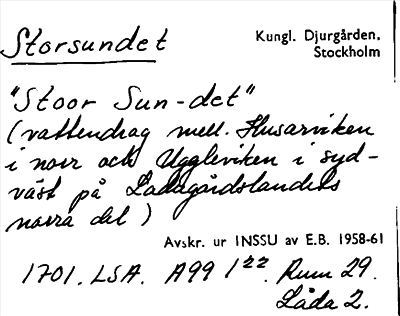 Storsundet
Kungl. Djurgården,
Stockholm
"Stoor Sun-det"
(vattendrag mell. Husarviken
i norr och Uggleviken i syd-
väst på Ladugårdslandets
norra del)
Avskr. ur INSSU av E.B. 1958-61
1701. LSA. A99 1²². Rum 29.
Låda 2.